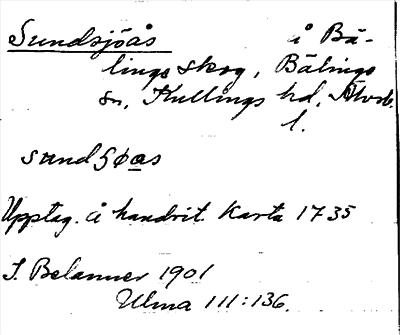 Sundsjöås å Bä-
lings skog, Bälings
sn, Kullings hd, Älvsb.
l.
sundʂøas
Upptag. å handrit. Karta 1735
I. Belanner 1901
Ulma 111:136.